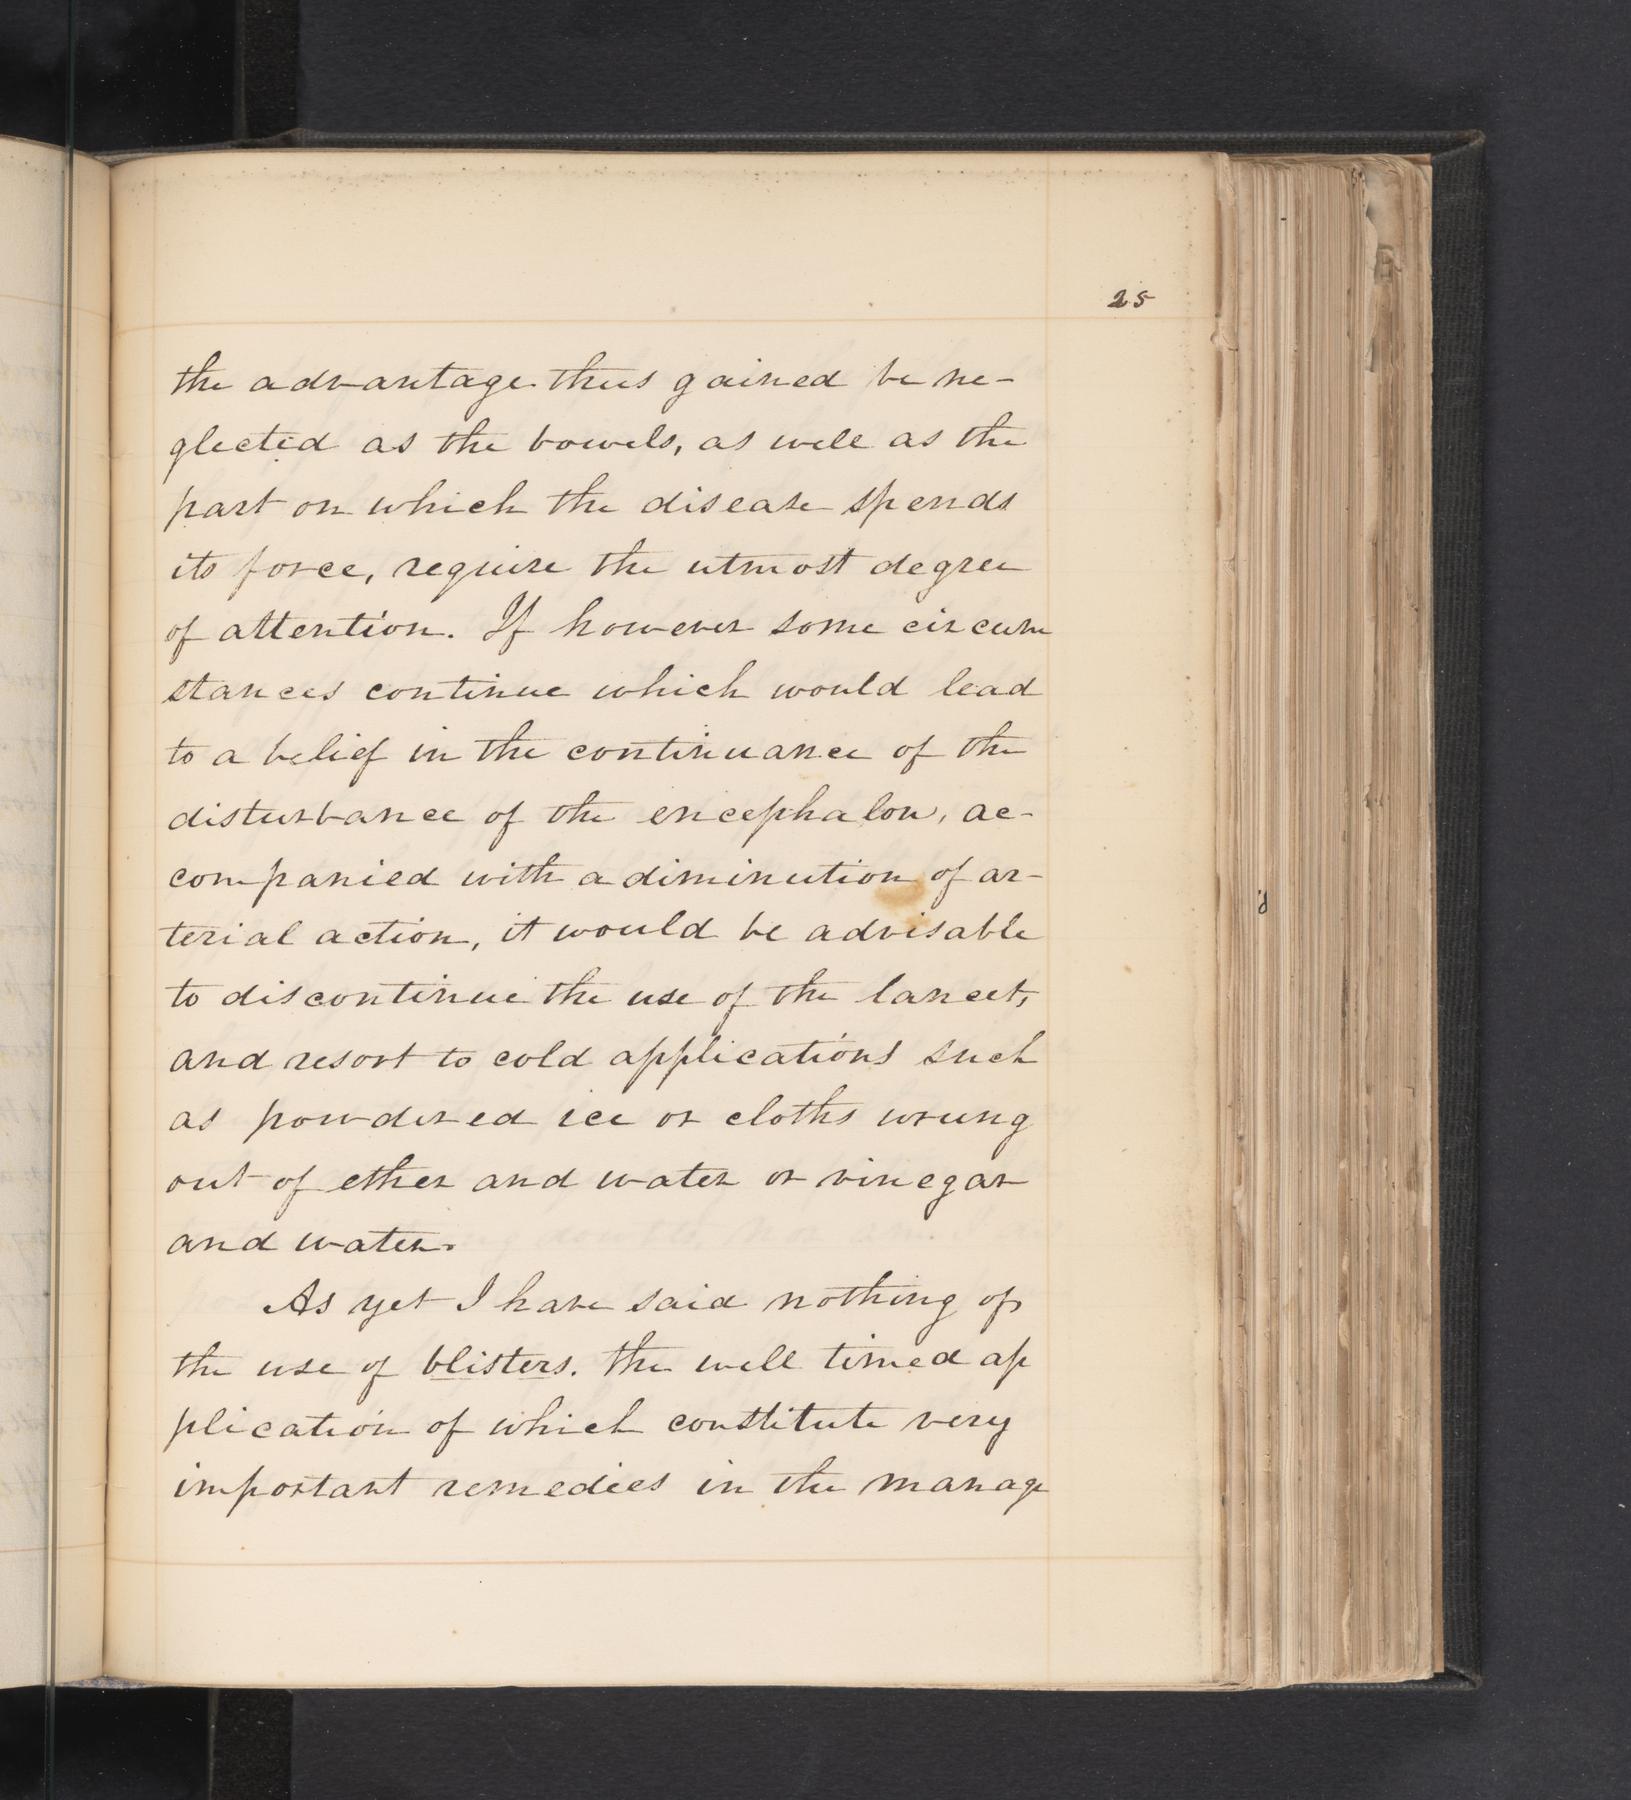 25
the advantage thus gained be ne-
glected as the bowels, as well as the
part on which the disease spends
its force, require the utmost degree
of attention. If however some circum
stances continue which would lead
to a belief in the continuance of the
disturbance of the encephalon, ac-
companied with a diminution of ar-
terial action, it would be advisable
to discontinue the use of the lancet,
and resort to cold applications such
as powdered ice or cloths wrung
out of ether and water or vinegar
and water.
As yet I have said nothing of
the use of blisters. the well timed ap
plication of which constitute very
important remedies in the manage